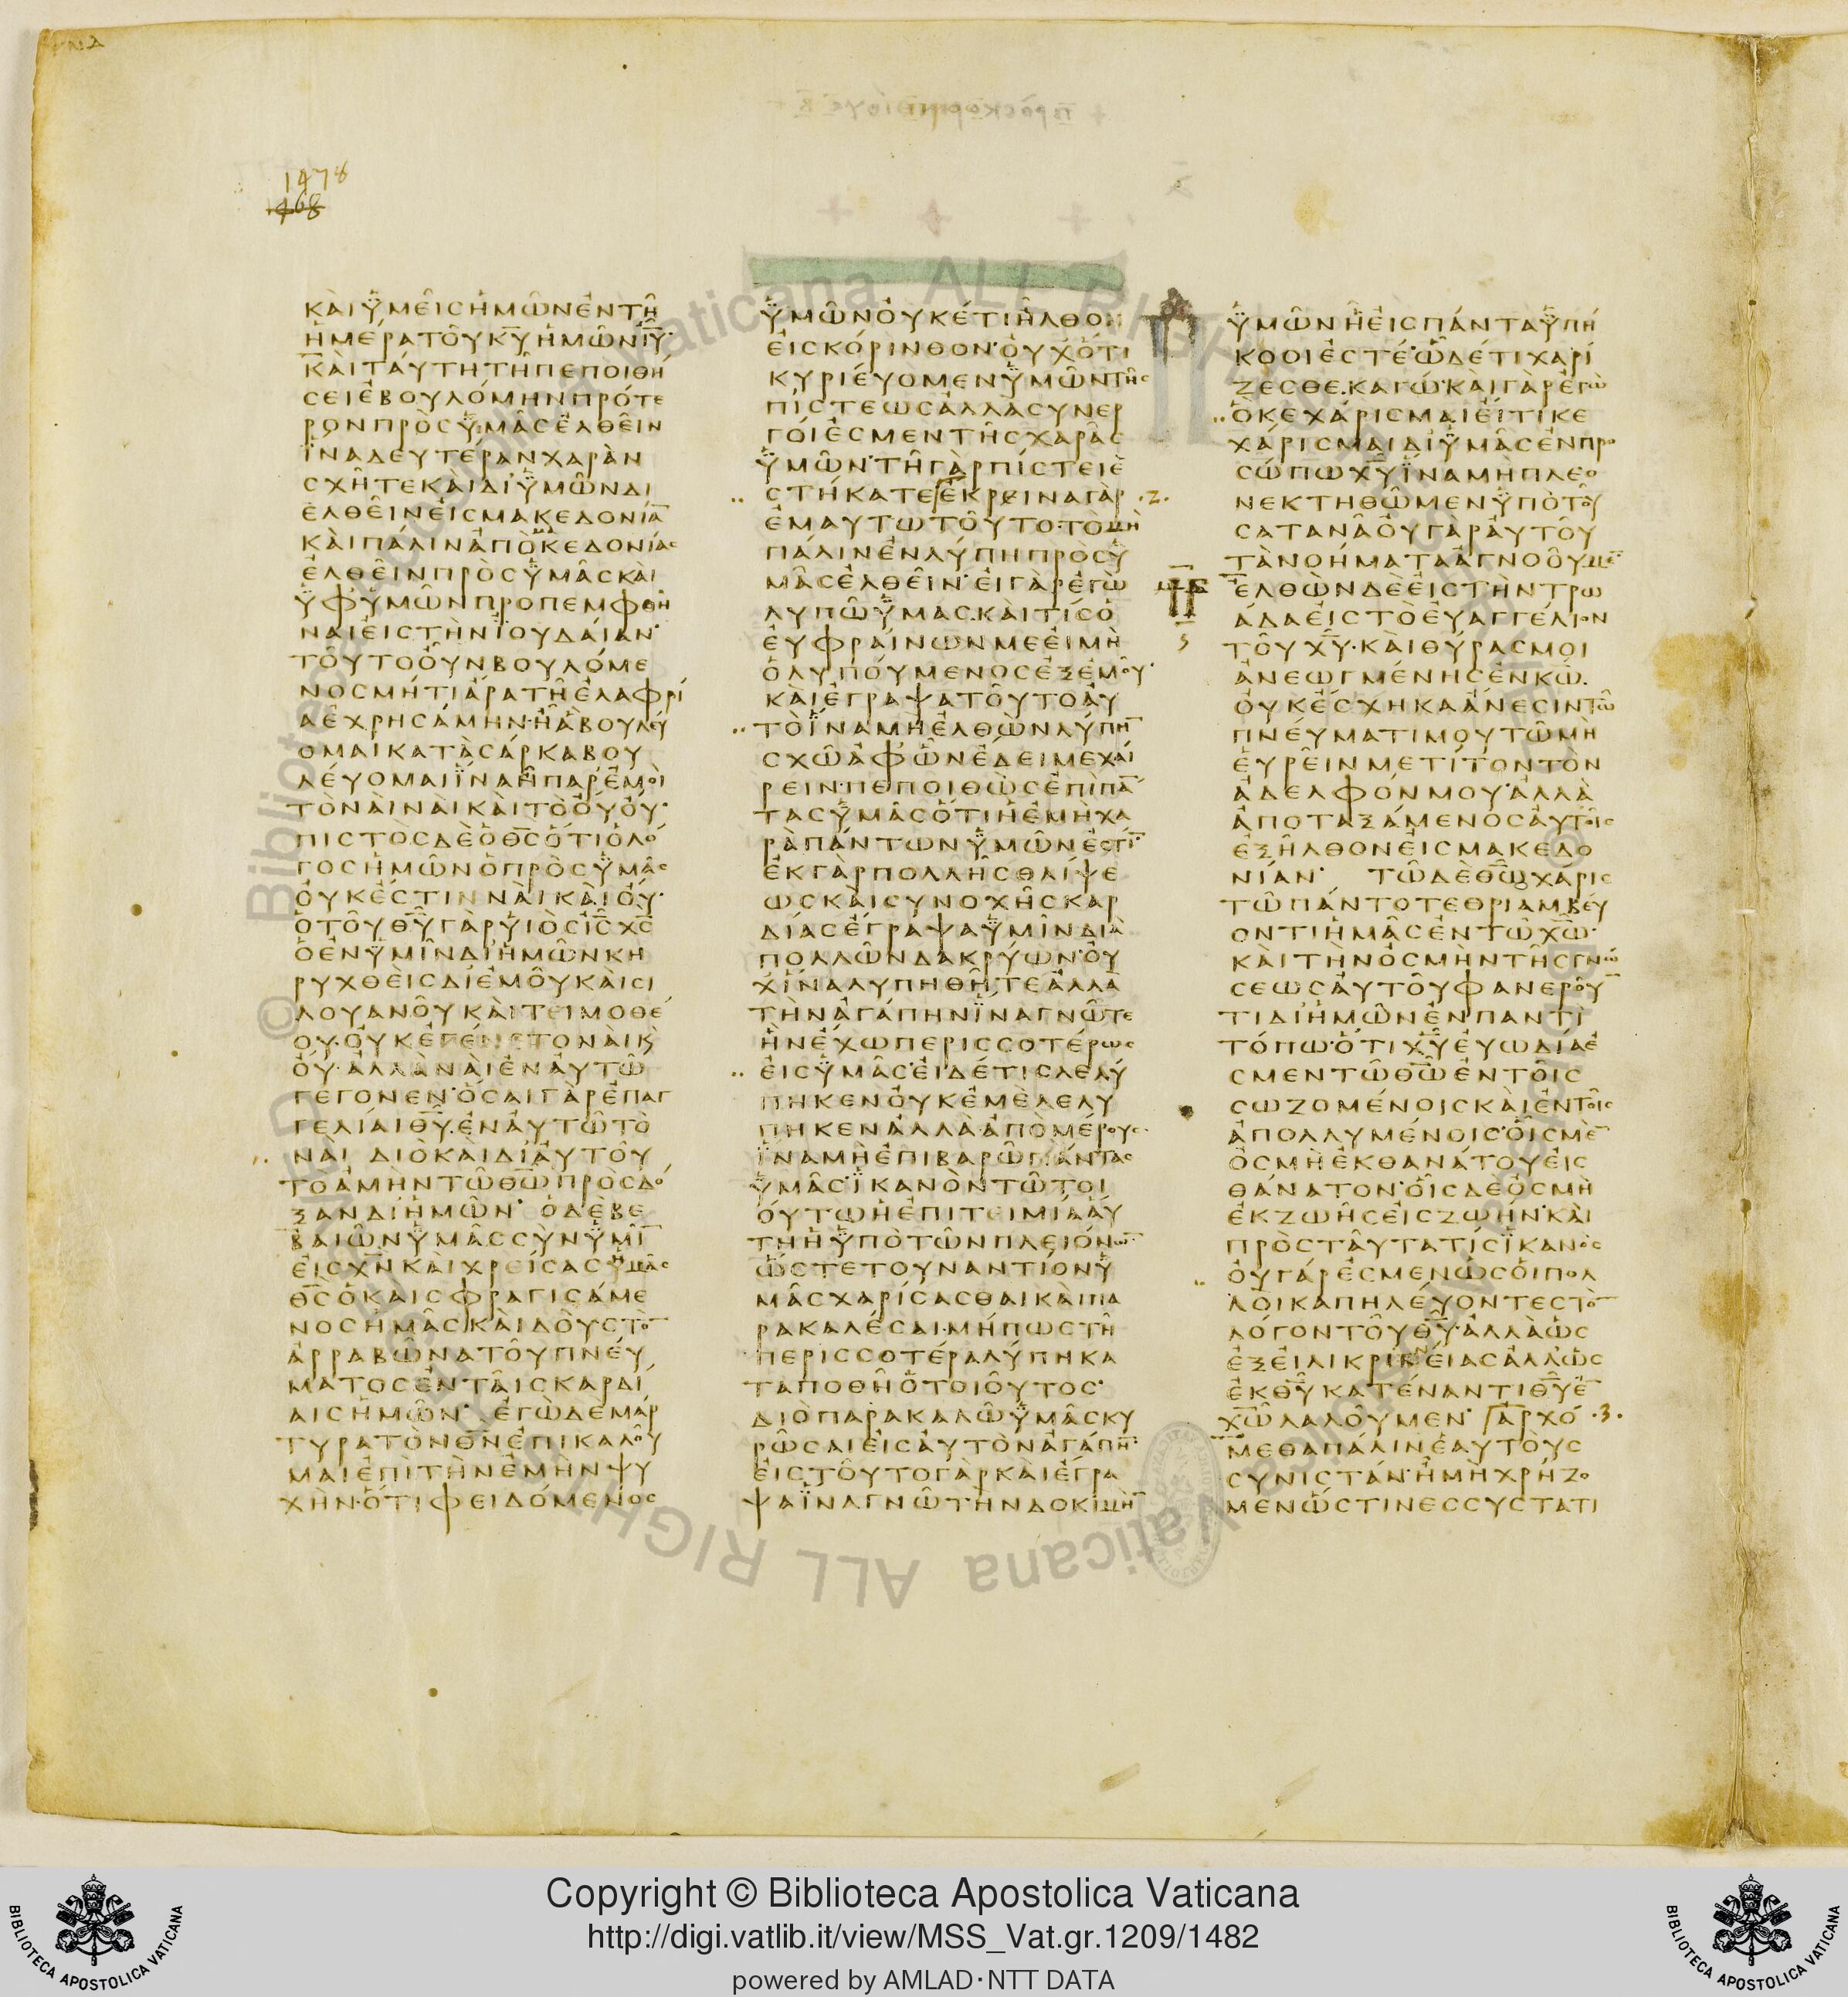 1478
468
ΚΑΙΫΜΕΙΣΗΜΩΝΕΝΤΗ
ΗΜΕΡΑΤΟΥΚΥΗΜΩΝΙΥ
ΚΑΙΤΑΥΤΗΤΗΠΕΠΟΙΘΗ
ΣΕΙΕΒΟΥΛΟΜΗΝΠΡΟΤΕ
ΡΟΝΠΡΟΣΫΜΑΣΕΛΘΕΙΝ
ΪΝΑΔΕΥΤΕΡΑΝΧΑΡΑΝ
ΣΧΗΤΕΚΑΙΔΙΫΜΩΝΔΙ
ΕΛΘΕΙΝΕΙΣΜΑΚΕΔΟΝΙΑ̅
ΚΑΙΠΑΛΙΝΑΠΟΜΑΚΕΔΟΝΙΑΣ
ΕΛΘΕΙΝΠΡΟΣΫΜΑΣΚΑΙ
ΫΦΫΜΩΝΠΡΟΠΕΜΦΘΗ
ΝΑΙΕΙΣΤΗΝΪΟΥΔΑΙΑΝ
ΤΟΥΤΟΟΥΝΒΟΥΛΟΜΕ
ΝΟΣΜΗΤΙΑΡΑΤΗΕΛΑΦΡΙ
ΑΕΧΡΗΣΑΜΗΝ·ΗΑΒΟΥΛΕΥ
ΟΜΑΙΚΑΤΑΣΑΡΚΑΒΟΥ
ΛΕΥΟΜΑΙΪΝΑΗΠΑΡΕΜΟΙ
ΤΟΝΑΙΝΑΙΚΑΙΤΟΟΥΟΥ·
ΠΙΣΤΟΣΔΕΟΘΣΟΤΙΟΛΟ
ΓΟΣΗΜΩΝΟΠΡΟΣΫΜΑΣ
ΟΥΚΕΣΤΙΝΝΑΙΚΑΙΟΥ·
ΟΤΟΥΘΥΓΑΡΥΙΟΣΙΣΧΣ
ΟΕΝΫΜΙΝΔΙΗΜΩΝΚΗ
ΡΥΧΘΕΙΣΔΙΕΜΟΥΚΑΙΣΙ
ΛΟΥΑΝΟΥΚΑΙΤΕΙΜΟΘΕ
ΟΥ·ΟΥΚΕΓΕΝΕΤΟΝΑΙΚ
ΟΥ·ΑΛΛΑΝΑΙΕΝΑΥΤΩ
ΓΕΓΟΝΕΝ·ΟΣΑΙΓΑΡΕΠΑΓ
ΓΕΛΙΑΙΘΥ·ΕΝΑΥΤΩΤΟ
ΝΑΙ ΔΙΟΚΑΙΔΙΑΥΤΟΥ
ΤΟΑΜΗΝΤΩΘΩΠΡΟΣΔΟ
ΞΑΝΔΙΗΜΩΝ· ΟΔΕΒΕ
ΒΑΙΩΝΫΜΑΣΣΥΝΫΜΙ̅
ΕΙΣΧΝΚΑΙΧΡΕΙΣΑΣΗΜΑΣ
ΘΣΟΚΑΙΣΦΡΑΓΙΣΑΜΕ
ΝΟΣΗΜΑΣΚΑΙΔΟΥΣΤΟ̅
ΑΡΡΑΒΩΝΑΤΟΥΠΝΕΥ
ΜΑΤΟΣΕΝΤΑΙΣΚΑΡΔΙ
ΑΙΣΗΜΩΝ· ΕΓΩΔΕΜΑΡ
ΤΥΡΑΤΟΝΘΝΕΠΙΚΑΛΟΥ
ΜΑΙΕΠΙΤΗΝΕΜΗΝΨΥ
ΧΗΝ·ΟΤΙΦΕΙΔΟΜΕΝΟΣ
ΫΜΩΝΟΥΚΕΤΙΗΛΘΟΝ
ΕΙΣΚΟΡΙΝΘΟΝ·ΟΥΧΟΤΙ
ΚΥΡΙΕΥΟΜΕΝΫΜΩΝΤΗΣ
ΠΙΣΤΕΩΣΑΛΛΑΣΥΝΕΡ
ΓΟΙΕΣΜΕΝΤΗΣΧΑΡΑΣ
ΫΜΩΝ·ΤΗΓΑΡΠΙΣΤΕΙΕ
ΣΤΗΚΑΤΕΕΚΡΕΙΝΑΓΑΡ ·2·
ΕΜΑΥΤΩΤΟΥΤΟ·ΤΟΜΗ
ΠΑΛΙΝΕΝΛΥΠΗΠΡΟΣΫ
ΜΑΣΕΛΘΕΙΝ·ΕΙΓΑΡΕΓΩ
ΛΥΠΩΫΜΑΣ·ΚΑΙΤΙΣΟ
ΕΥΦΡΑΙΝΩΝΜΕΕΙΜΗ
ΟΛΥΠΟΥΜΕΝΟΣΕΞΕΜΟΥ·
ΚΑΙΕΓΡΑΨΑΤΟΥΤΟΑΥ
ΤΟΪΝΑΜΗΕΛΘΩΝΛΥΠΗ̅
ΣΧΩΑΦΩΝΕΔΕΙΜΕΧΑΙ
ΡΕΙΝ·ΠΕΠΟΙΘΩΣΕΠΙΠΑ̅
ΤΑΣΫΜΑΣΟΤΙΗΕΜΗΧΑ
ΡΑΠΑΝΤΩΝΫΜΩΝΕΣΤΙ̅·
ΕΚΓΑΡΠΟΛΛΗΣΘΛΙΨΕ
ΩΣΚΑΙΣΥΝΟΧΗΣΚΑΡ
ΔΙΑΣΕΓΡΑΨΑΫΜΙΝΔΙΑ
ΠΟΛΛΩΝΔΑΚΡΥΩΝ·ΟΥ
ΧΪΝΑΛΥΠΗΘΗΤΕΑΛΛΑ
ΤΗΝΑΓΑΠΗΝΪΝΑΓΝΩΤΕ
ΗΝΕΧΩΠΕΡΙΣΣΟΤΕΡΩΣ
ΕΙΣΫΜΑΣ·ΕΙΔΕΤΙΣΛΕΛΥ
ΠΗΚΕΝΟΥΚΕΜΕΛΕΛΥ
ΠΗΚΕΝΑΛΛΑ·ΑΠΟΜΕΡΟΥΣ
ΪΝΑΜΗΕΠΙΒΑΡΩΠΑΝΤΑΣ
ΫΜΑΣ·ΪΚΑΝΟΝΤΩΤΟΙ
ΟΥΤΩΗΕΠΙΤΕΙΜΙΑΑΥ
ΤΗΗΫΠΟΤΩΝΠΛΕΙΟΝΩ̅·
ΩΣΤΕΤΟΥΝΑΝΤΙΟΝΫ
ΜΑΣΧΑΡΙΣΑΣΘΑΙΚΑΙΠΑ
ΡΑΚΑΛΕΣΑΙ·ΜΗΠΩΣΤΗ
ΠΕΡΙΣΣΟΤΕΡΑΛΥΠΗΚΑ
ΤΑΠΟΘΗΟΤΟΙΟΥΤΟΣ·
ΔΙΟΠΑΡΑΚΑΛΩΫΜΑΣΚΥ
ΡΩΣΑΙΕΙΣΑΥΤΟΝΑΓΑΠΗ̅·
ΕΙΣΤΟΥΤΟΓΑΡΚΑΙΕΓΡΑ
ΨΑΪΝΑΓΝΩΤΗΝΔΟΚΙΜΗ̅
ΫΜΩΝΗΕΙΣΠΑΝΤΑΫΠΗ
ΚΟΟΙΕΣΤΕ·ΩΔΕΤΙΧΑΡΙ
ΖΕΣΘΕ·ΚΑΓΩ·ΚΑΙΓΑΡΕΓΩ
ΟΚΕΧΑΡΙΣΜΑΙΕΙΤΙΚΕ
ΧΑΡΙΣΜΑΙΔΙΫΜΑΣΕΝΠΡΟ
ΣΩΠΩΧΥΪΝΑΜΗΠΛΕΟ
ΝΕΚΤΗΘΩΜΕΝΫΠΟΤΟΥ
ΣΑΤΑΝΑΟΥΓΑΡΑΥΤΟΥ
ΤΑΝΟΗΜΑΤΑΑΓΝΟΟΥΜΕ̅
ΕΛΘΩΝΔΕΕΙΣΤΗΝΤΡΩ
ΑΔΑΕΙΣΤΟΕΥΑΓΓΕΛΙΟΝ
ΤΟΥΧΥ·ΚΑΙΘΥΡΑΣΜΟΙ
ΑΝΕΩΓΜΕΝΗΣΕΝΚΩ·
ΟΥΚΕΣΧΗΚΑΑΝΕΣΙΝΤΩ
ΠΝΕΥΜΑΤΙΜΟΥΤΩΜΗ
ΕΥΡΕΙΝΜΕΤΙΤΟΝΤΟΝ
ΑΔΕΛΦΟΝΜΟΥ·ΑΛΛΑ
ΑΠΟΤΑΞΑΜΕΝΟΣΑΥΤΟΙΣ
ΕΞΗΛΘΟΝΕΙΣΜΑΚΕΔΟ
ΝΙΑΝ· ΤΩΔΕΘΩΧΑΡΙΣ
ΤΩΠΑΝΤΟΤΕΘΡΙΑΜΒΕΥ
ΟΝΤΙΗΜΑΣΕΝΤΩΧΩ·
ΚΑΙΤΗΝΟΣΜΗΝΤΗΣΓΝΩ
ΣΕΩΣΑΥΤΟΥΦΑΝΕΡΟΥ̅
ΤΙΔΙΗΜΩΝΕΝΠΑΝΤΙ
ΤΟΠΩ·ΟΤΙΧΥΕΥΩΔΙΑΕ
ΣΜΕΝΤΩΘΩΕΝΤΟΙΣ
ΣΩΖΟΜΕΝΟΙΣΚΑΙΕΝΤΟΙΣ
ΑΠΟΛΛΥΜΕΝΟΙΣ·ΟΙΣΜΕ̅
ΟΣΜΗΕΚΘΑΝΑΤΟΥΕΙΣ
ΘΑΝΑΤΟΝ·ΟΙΣΔΕΟΣΜΗ
ΕΚΖΩΗΣΕΙΣΖΩΗΝ·ΚΑΙ
ΠΡΟΣΤΑΥΤΑΤΙΣΪΚΑΝΟΣ
ΟΥΓΑΡΕΣΜΕΝΩΣΟΙΠΟΛ
ΛΟΙΚΑΠΗΛΕΥΟΝΤΕΣΤΟ̅
ΛΟΓΟΝΤΟΥΘΥ·ΑΛΛΑΩΣ
ΕΞΕΙΛΙΚΡΙΝΕΙΑΣΑΛΛΩΣ
ΕΚΘΥΚΑΤΕΝΑΝΤΙΘΥΕ̅
ΧΩΛΑΛΟΥΜΕΝ· ΑΡΧΟ ·3·
ΜΕΘΑΠΑΛΙΝΕΑΥΤΟΥΣ
ΣΥΝΙΣΤΑΝ·ΗΜΗΧΡΗΖΟ
ΜΕΝΩΣΤΙΝΕΣΣΥΣΤΑΤΙ
Copyright © Biblioteca Apostolica Vaticana
http://digi.vatlib.it/view/MSS_Vat.gr.1209/1482
powered by AMLAD·NTT DATA
BIBLIOTECA APOSTOLICA VATICANA
BIBLIOTECA APOSTOLICA VATICANA